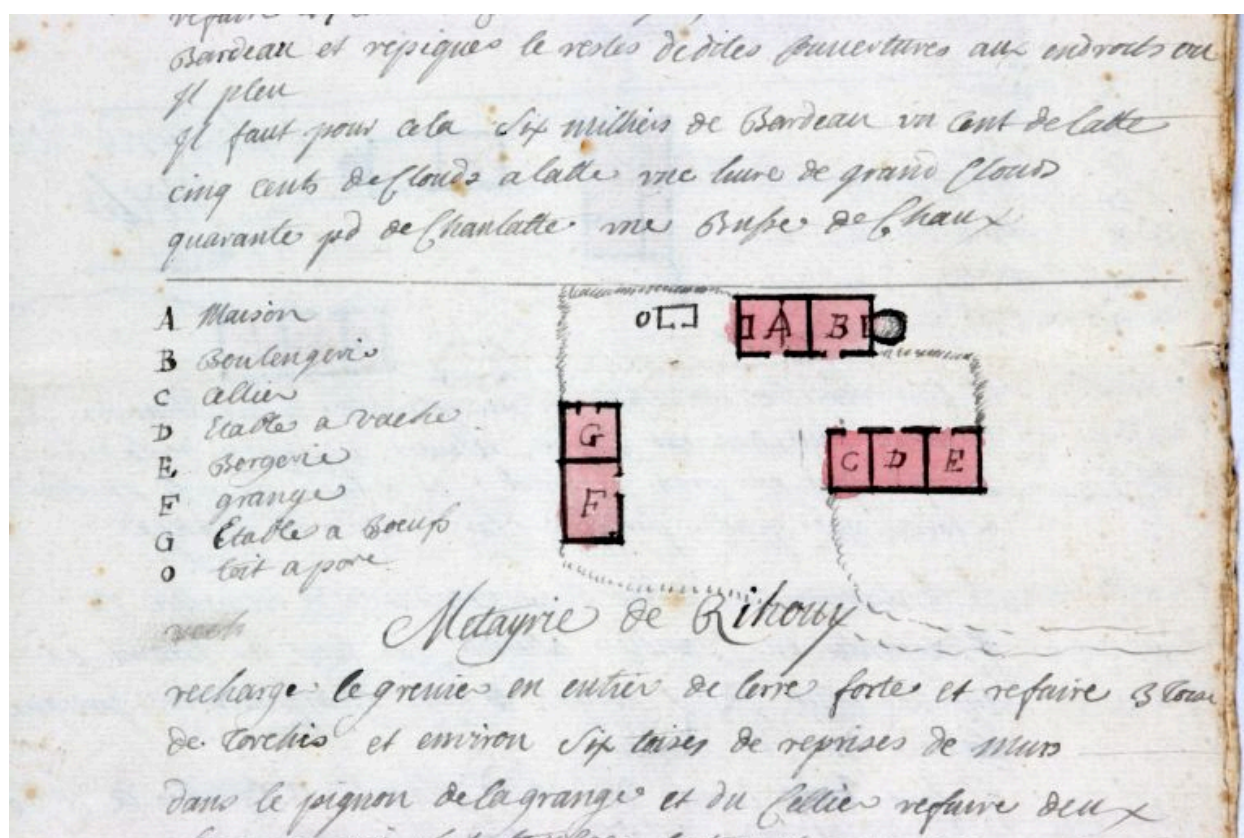 Bardeau et repiquer le restes desdites Couvertures aux endroits ou
Jl pleu
Jl faut pour cela Six milliers de Bardeau vn Cent de latte
cinq cents de Clouds a latte vne liure de grand Clouds
quarante pd de Chanlatte vne Busse de Chaux
A Maison
B Boulengerie
C Cellier
D Etable a vache
E Bergerie
F grange
G Etable a Boeufs
o toit a porc
o
A B
G
F
C D E
Metayrie de Rihouy
recharger le grenier en entier de terre forte et refaire 3 toise
de Torchis et environ Six toises de reprises de murs
dans le pignon de la grange et du Cellier refaire deux